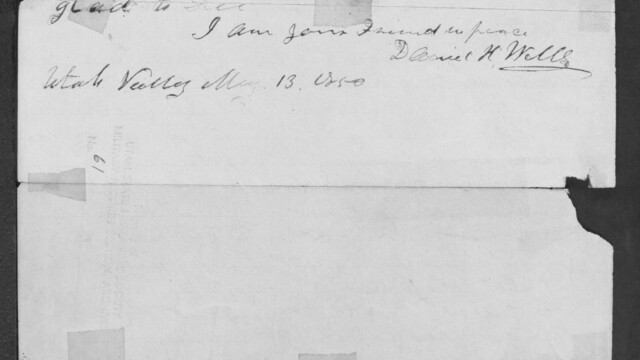 glad to see
I am your Friend in peace
Daniel H. Wells
Utah Valley May 13. 1850
No. 19